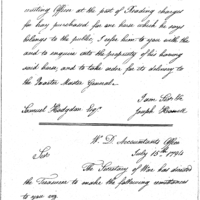 muting Officer at the post of Reading charges
for hay purchased for one horse which he says
belongs to the public, I refer him to you with the
and to enquire into the propriety of his having
said horse, and to take order for its delivery to
the Quarter Master General.
I am Sir &c
Samuel Hodgdon Esqr Joseph Howell
W. D. Accountants Office
Sir July 15th 1794
The Secretary of War has directed
the Treasurer to make the following remittances
to you on